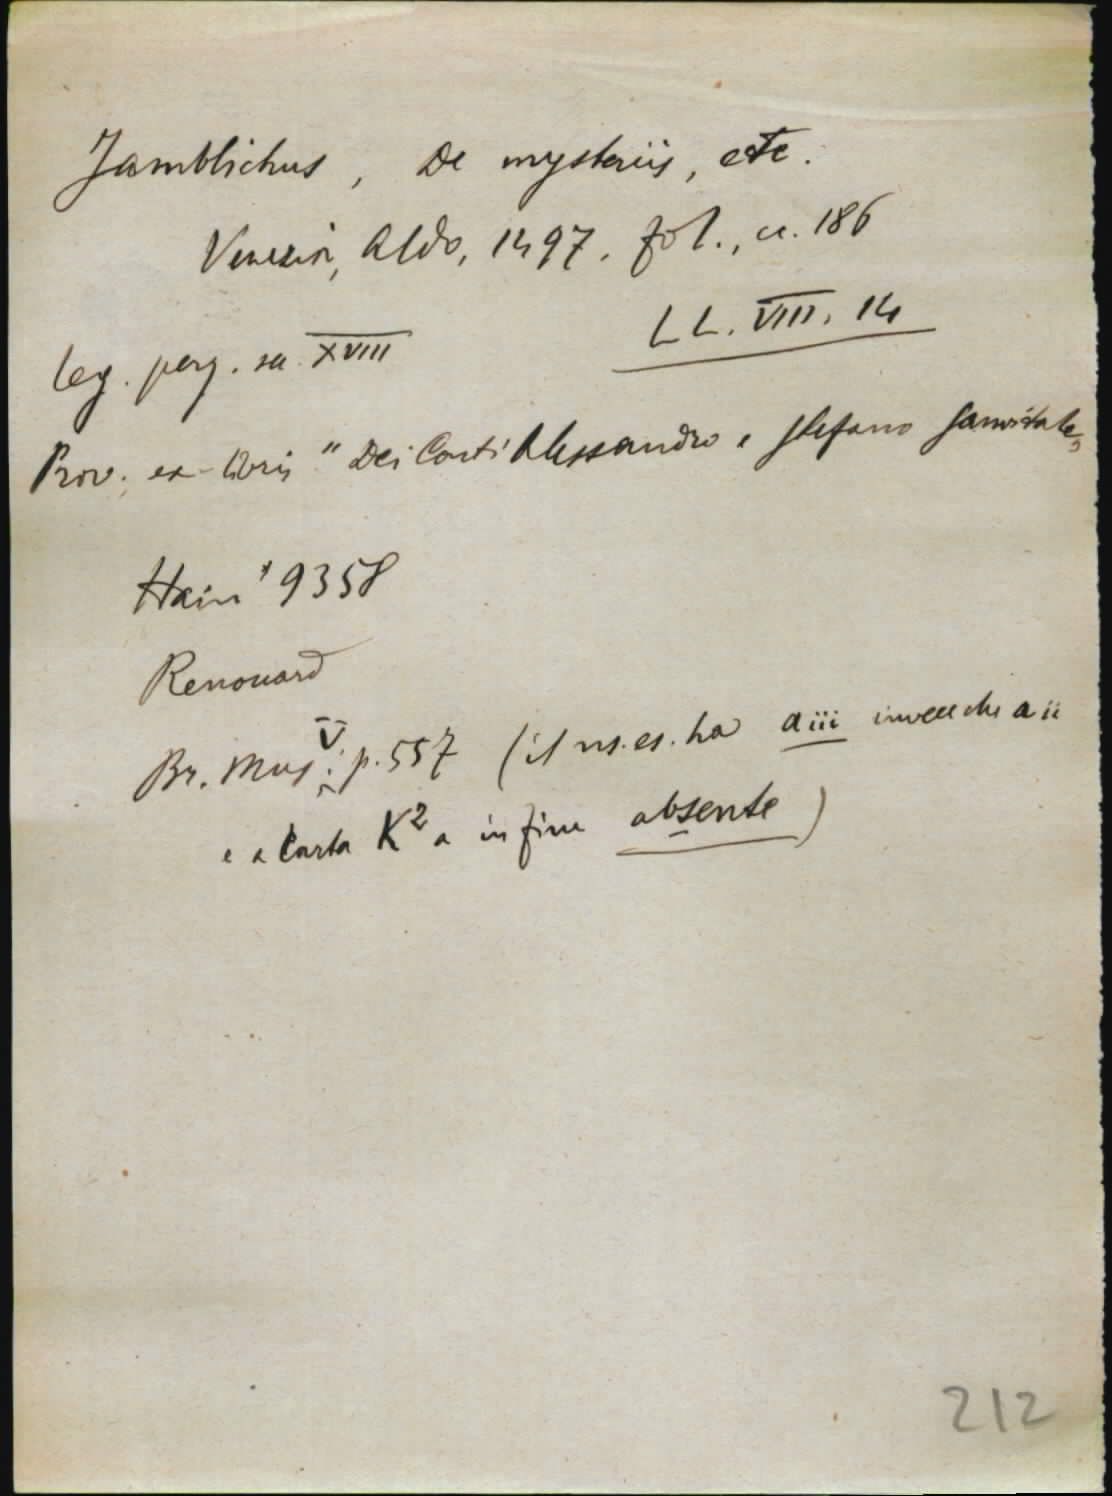 Jamblichus, De mysteriis, etc.
Venezia, Aldo, 1497, fol., cc. 186
LL. VIII. 14
leg. perg. sec. XVIII
Prov. ex-libris "Dei Conti Alessandro e Stefano Sanvitale"
Hain *9358
Renouard
Br. Mus. V, p. 557 (il ns. es. ha aiii invece che aii
e a carta K² a in fine absente)
212